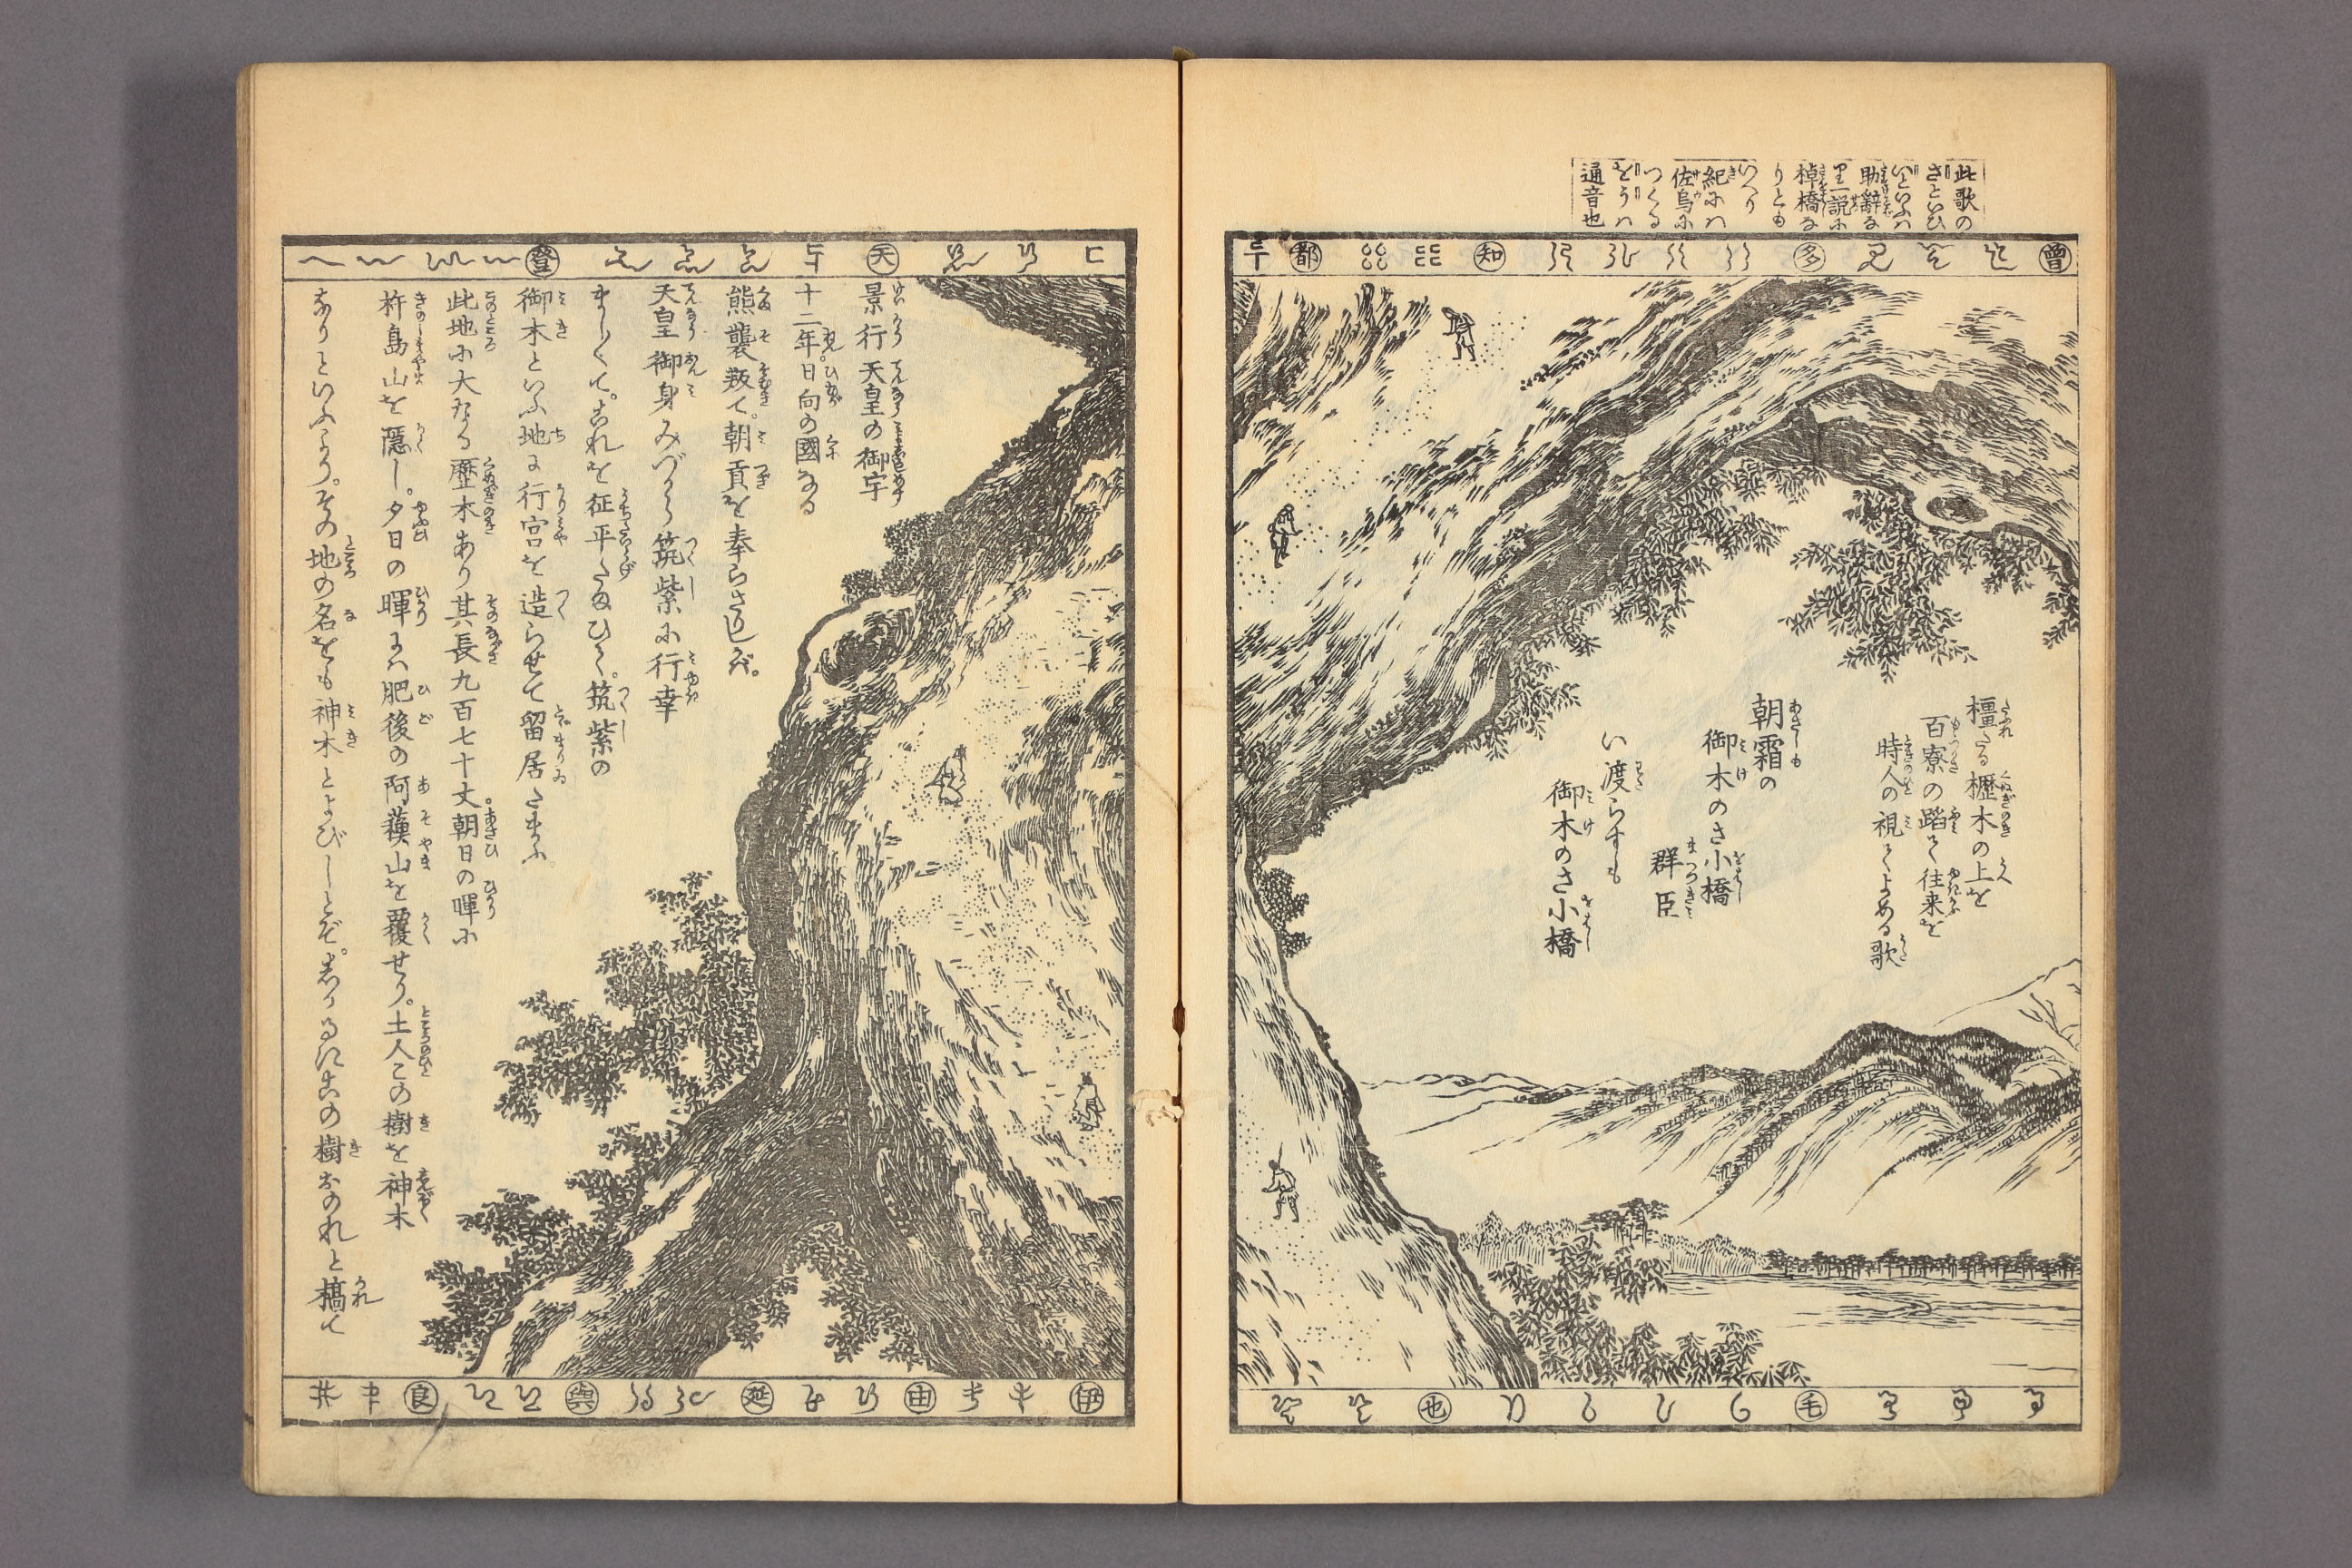 此歌の
さといひ
いといふハ
助辞な
り一説に
棹橋な
りとも
いへり
紀にハ
佐烏に
つくる
をうハ
通音也
曽
多
知
都
橿たる櫪木の上を
百寮の蹈て往来を
時人の視てよめる歌
朝霜の
御木のさ小橋
群臣
い渡らすも
御木のさ小橋
毛
也
天
登
景行天皇の御宇
十二年。日向の國なる
熊襲叛て。朝貢を奉らざりしかバ。
天皇御身みづから筑紫に行幸
ましくて。これを征平たまひて。筑紫の
御木といふ地に行宮を造らせて留居たまふ。
此地に大なる歴木あり其長九百七十丈。朝日の暉に
杵島山を隠し。夕日の暉にハ肥後の阿蘓山を覆せり。土人この樹を神木
なりといふより。その地の名をも神木とよびしとぞ。しかるにこの樹おのれと槁て
伊
由
延
與
良